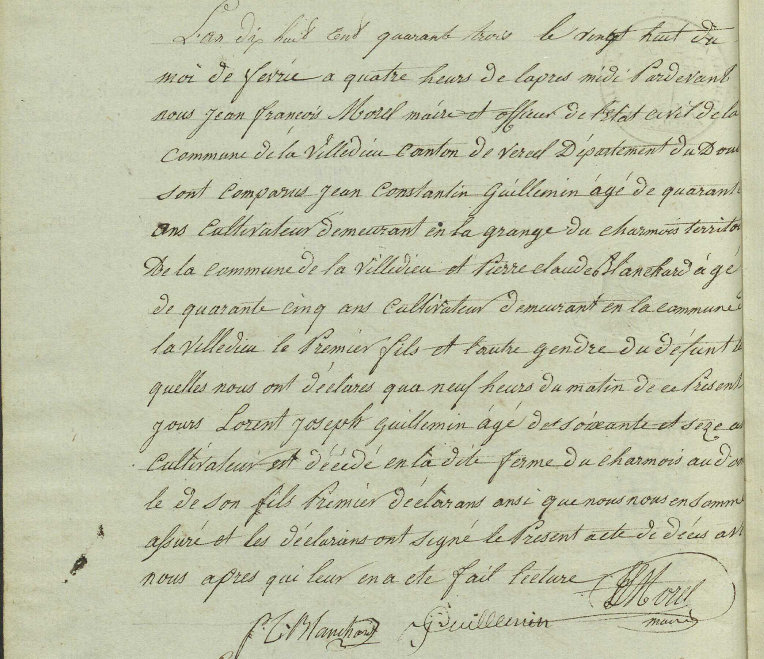 L'an dix huit cent quarante trois le vingt huit du
moi de fevrié a quatre heurs de lapres midi Pardevant
nous jean françois Morel maire et officier de l'état civil de la
Commune de la Villedieu Canton de Vercel Département du Dou
sont Comparus jean Constantin Guillemin âgé de quarant
ans Cultivateur demeurant en la grange du charmois territoi
De la Commune de la Villedieu et Pierre claude Blanchard âgé
de quarante cinq ans Cultivateur demeurant en la commune d
la Villedieu le Premier fils et l'autre gendre du défunt
quelles nous ont déclarés qua neuf heurs du matin de ce Present
jours Lorent joseph Guillemin âgé de soixante et seze a
Cultivateur est décédé en la dite ferme du charmois au dom
le de son fils Premier déclarans ansi que nous nous en somm
assuré et les déclarans ont signé le Present acte de décés av
nous apres qui leur en a été fait lecture Morel
P. C. Blanchard Guillemin maire